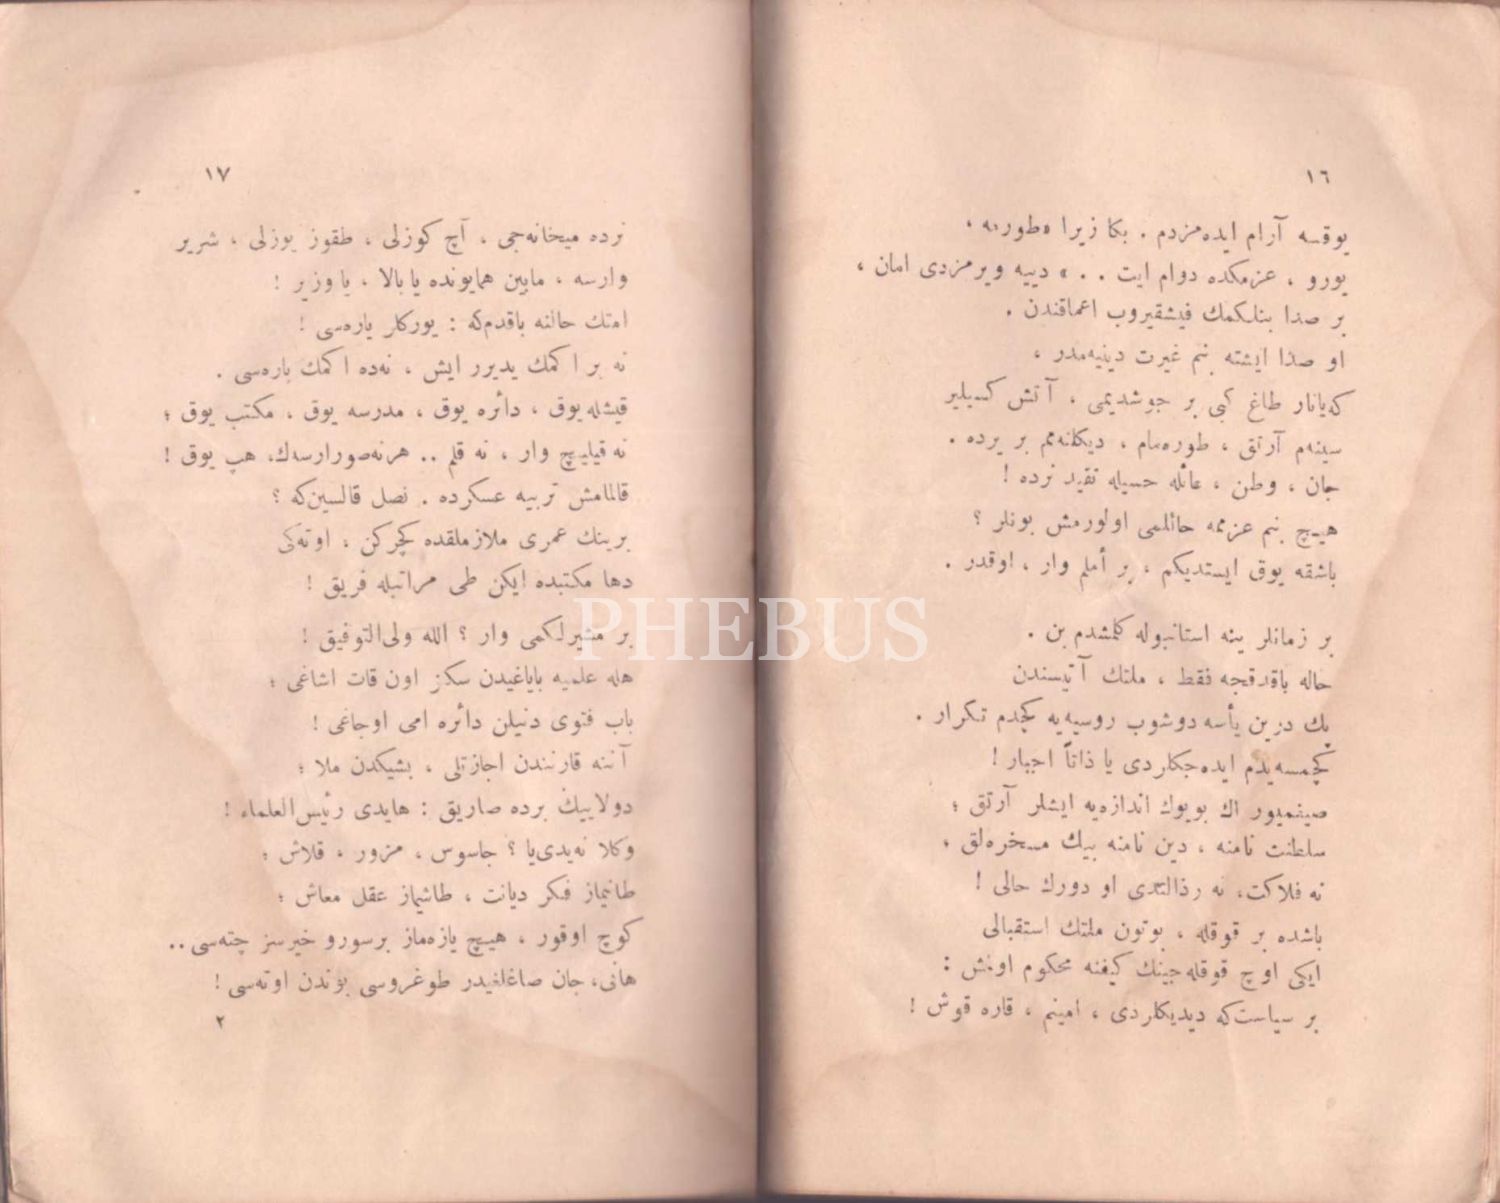 ١٦
يوقسه آرام ايده‌مزدم . بكا زيرا «طورمه ،
يورو ، عزمكده دوام ايت . . » دييه ويرمزدى امان ،
بر صدا بنلكمك فيشقيروب اعماقندن .
او صدا ايشته بنم غيرت دينيه‌مدر ،
كه‌يانار طاغ كبى بر جوشديمى ، آتش كسيلير
سينه‌م آرتق ، طوره‌مام ، ديكلنه‌مم بر يرده .
جان ، وطن ، عائله حسيله تقيد نرده !
هيچ بنم عزممه حائلمى اولورمش بونلر ؟
باشقه يوق ايستديكم ، بر أملم وار ، اوقدر .
بر زمانلر ينه استانبوله كلمشدم بن .
حاله باقدقجه فقط ، ملتك آتيسندن
پك درين يأسه دوشوب روسيه‌يه كچدم تكرار .
كچمسه‌يدم ايده‌جكلردى يا ذاتاً اجبار !
صيغميور اك بويوك اندازه‌يه ايشلر آرتق ؛
سلطنت نامنه ، دين نامنه بيك مسخره‌لق ؛
نه فلاكت، نه رذالتدى او دورك حالى !
باشده بر قوقله ، بوتون ملتك استقبالى
ايكى اوچ قوقله‌جينك كيفنه محكوم اولمش :
بر سياست‌كه ديديكلردى ، امينم ، قاره قوش !
١٧
نرده ميخانه‌جى ، آچ كوزلى ، طقوز يوزلى ، شرير
وارسه ، مابين همايونده يا بالا ، يا وزير !
امتك حالنه باقدم‌كه : يوركلر ياره‌سى !
نه بر اكمك يديرر ايش ، نه‌ده اكمك پاره‌سى .
قيشله يوق ، دائره يوق ، مدرسه يوق ، مكتب يوق ؛
نه قيليچ وار ، نه قلم .. هرنه‌صورارسه‌ك، هپ يوق !
قالمامش تربيه عسكرده . نصل قالسين‌كه ؟
برينك عمرى ملازملقده كچركن ، اوته‌كى
دها مكتبده ايكن طى مراتبله فريق !
بر مشيرلكمى وار ؟ الله ولى‌التوفيق !
هله علميه باياغيدن سكز اون قات اشاغى ؛
باب فتوى دنيلن دائره امى اوجاغى !
آننه قارنندن اجازتلى ، بشيكدن ملا ؛
دولاييك برده صاريق : هايدى رئيس‌العلماء !
وكلا نه‌يدى‌يا ؟ جاسوس ، مزور ، قلاش ؛
طانيماز فكر ديانت ، طاشيماز عقل معاش ؛
كوچ اوقور ، هيچ يازه‌ماز برسورو خيرسز چته‌سى ..
هانى، جان صاغلغيدر طوغروسى بوندن اوته‌سى !
٢
PHEBUS